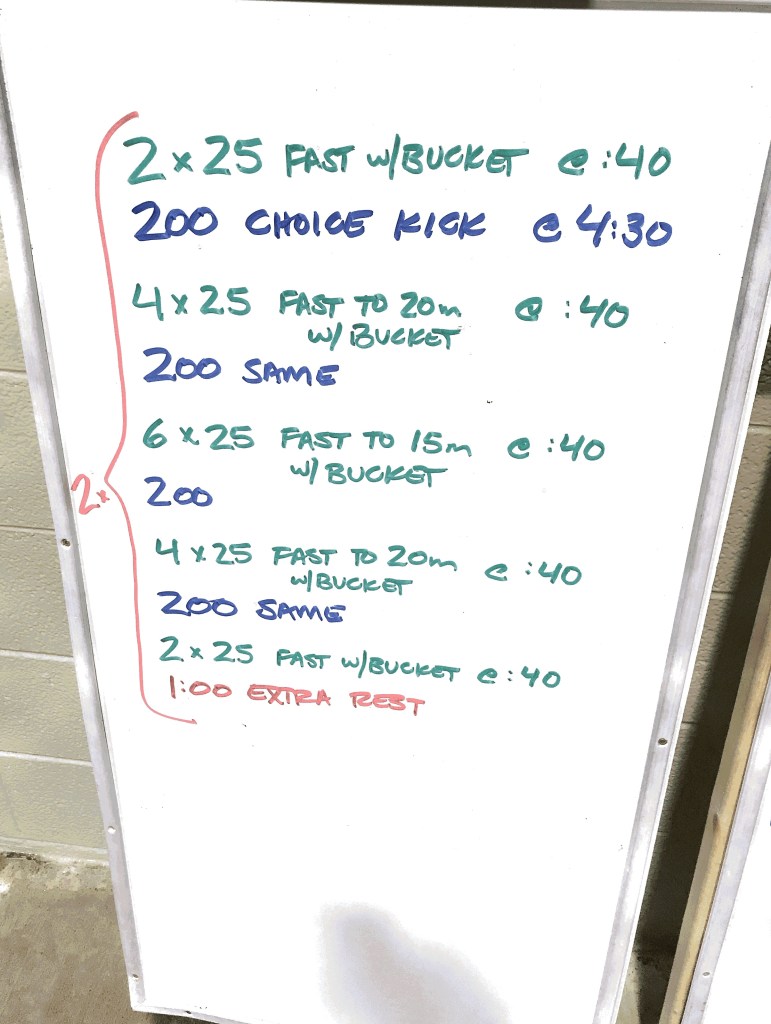 2 x 25 FAST W/BUCKET @ :40
200 CHOICE KICK @ 4:30
4 x 25 FAST TO 20m @ :40
W/ BUCKET
200 SAME
6 x 25 FAST TO 15m @ :40
W/ BUCKET
2x
200
4 x 25 FAST TO 20m @ :40
W/BUCKET
200 SAME
2 x 25 FAST W/BUCKET @ :40
1:00 EXTRA REST